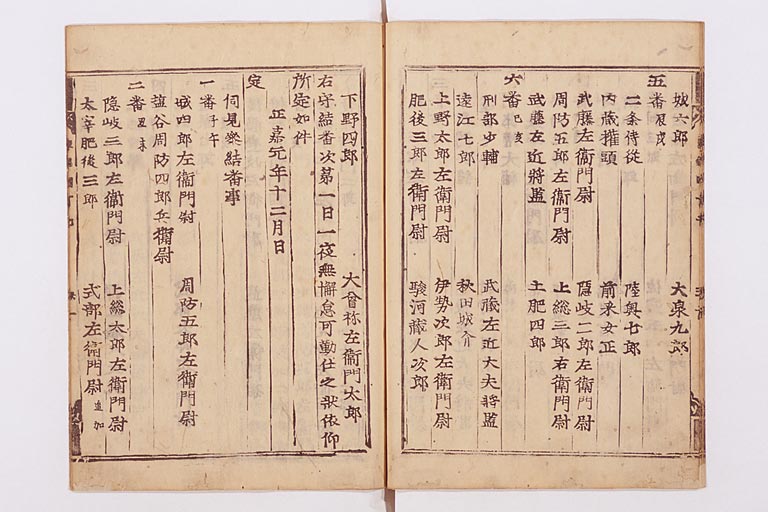 城六郎　大泉九郎
五番辰戌
二条侍従　陸奥七郎
内蔵権頭　前采女正
武藤左衛門尉　隠岐二郎左衛門尉
周防五郎左衛門尉　上総三郎右衛門尉
武藤左近将監　土肥四郎
六番巳亥
刑部少輔　武蔵左近大夫将監
遠江七郎　秋田城介
上野太郎左衛門尉　伊勢次郎左衛門尉
肥後三郎左衛門尉　駿河蔵人次郎
下野四郎　大曾祢左衛門太郎
右守結番次第一日一夜無懈怠可勤仕之状依仰
所定如件
正嘉元年十二月日
定
伺見衆結番事
一番子午
城四郎左衛門尉　周防五郎左衛門尉
渋谷周防四郎兵衛尉
二番丑未
隠岐三郎左衛門尉　上総太郎左衛門尉
太宰肥後三郎　式部左衛門尉